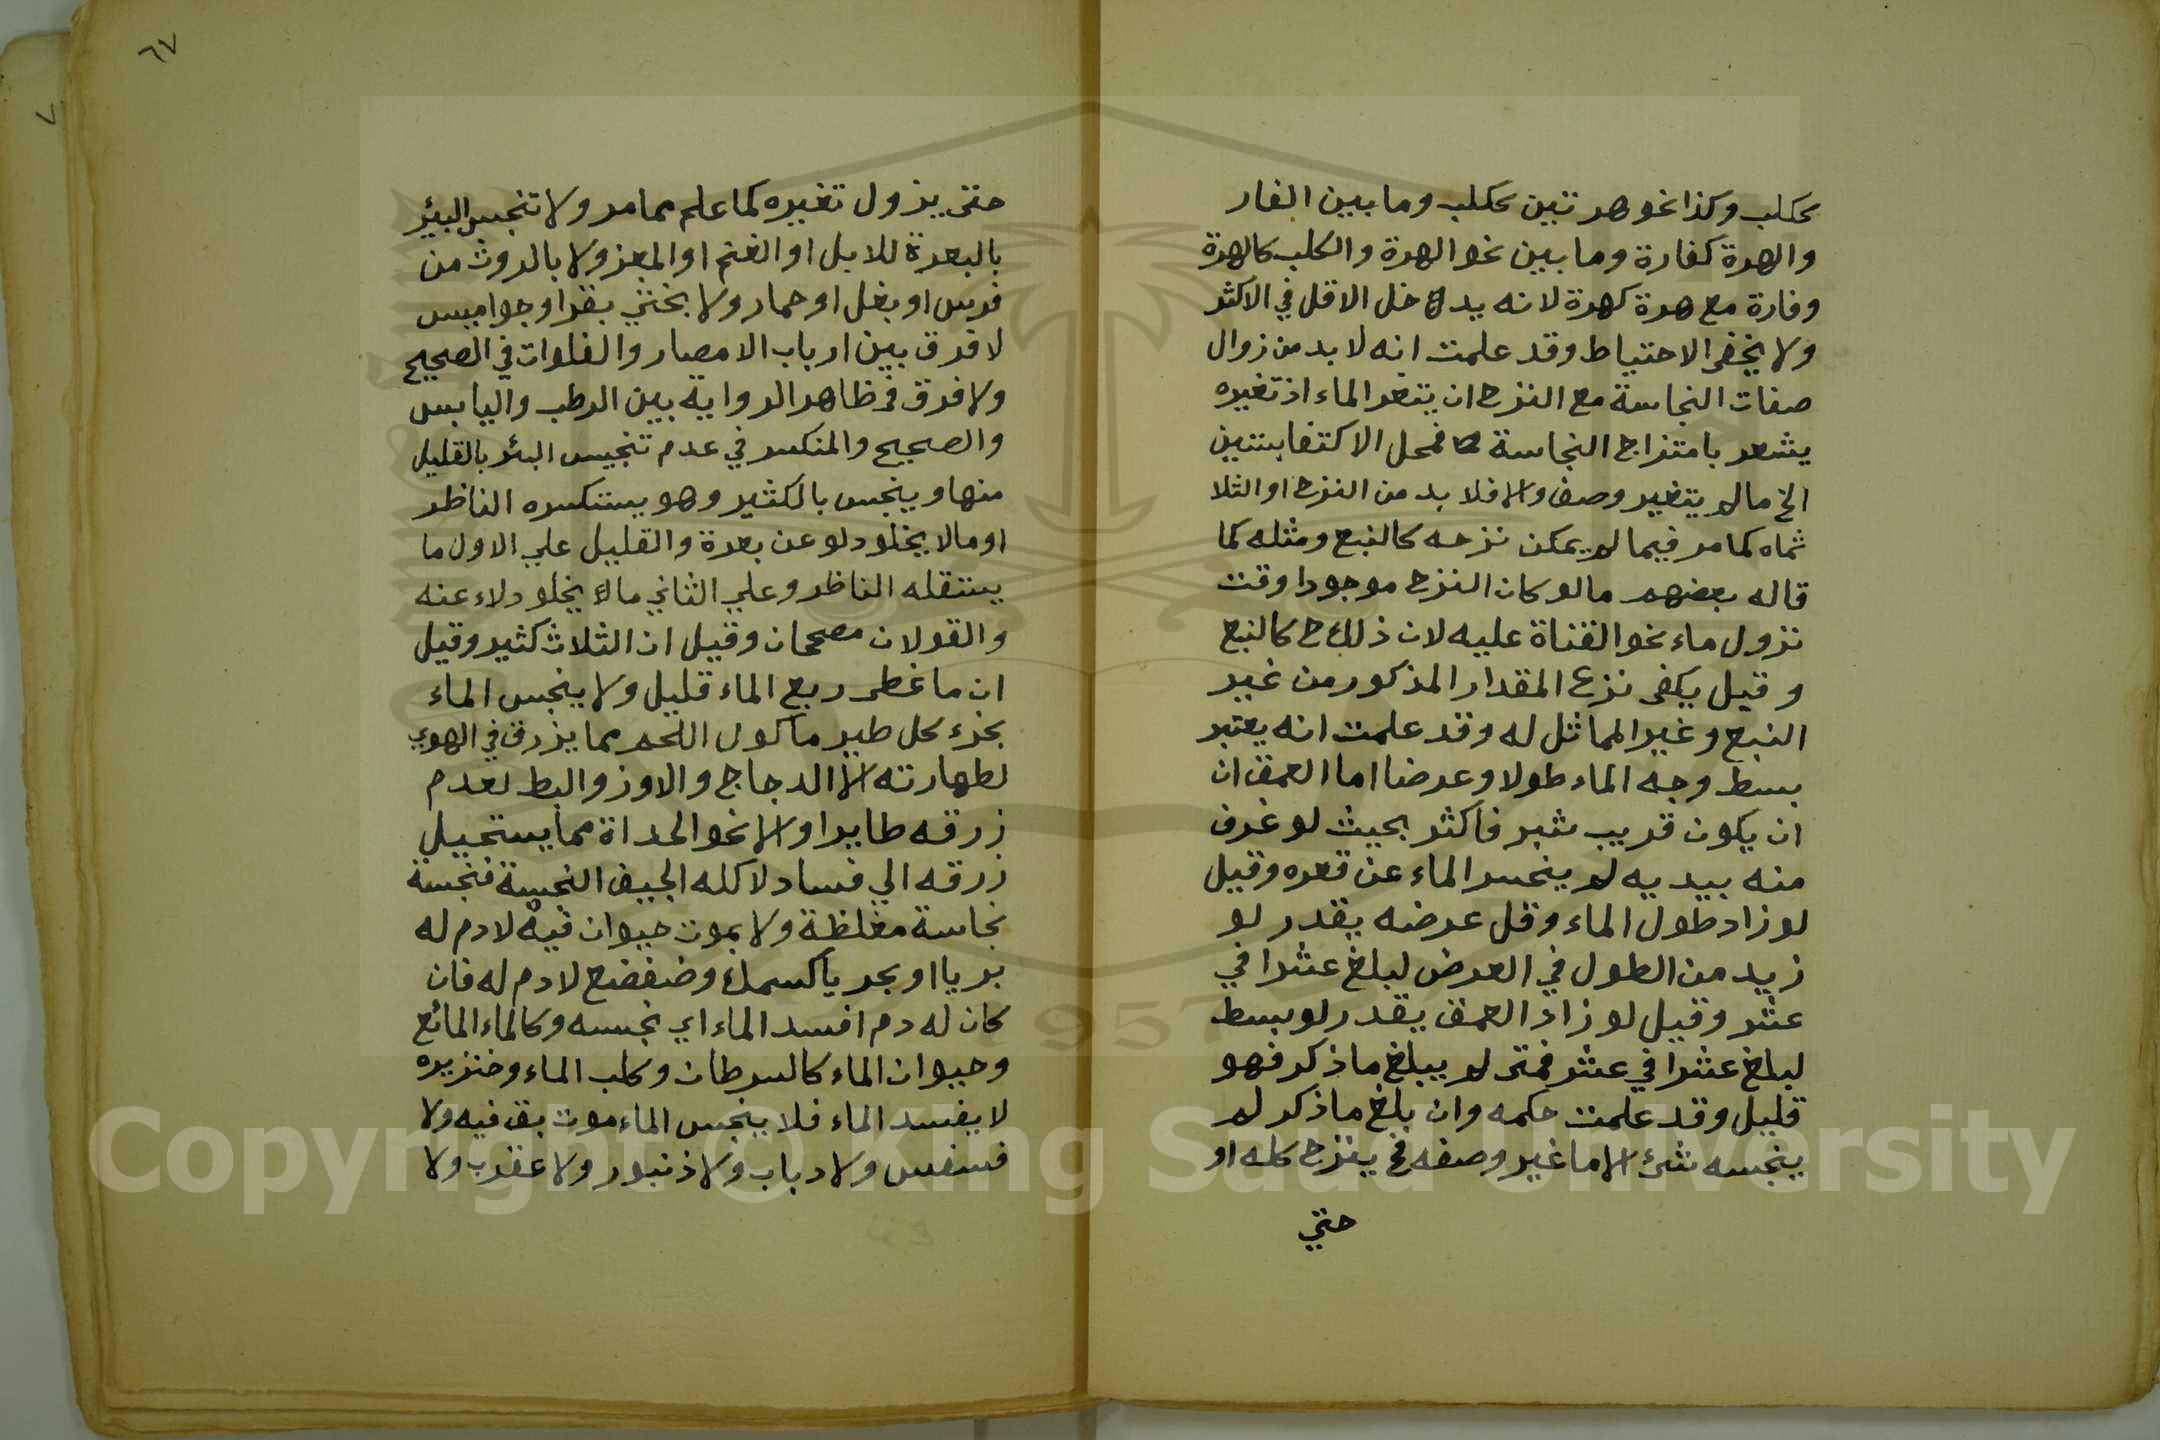 ككلب وكذا نحو هرتين ككلب وما بين الفار
والهرة كفارة وما بين نحو الهرة والكلب كالهرة
وفارة مع هرة كهرة لانه يدخل الاقل في الاكثر
ولا يخفى الاحتياط وقد علمت انه لا بد من زوال
صفات النجاسة مع النزح ان يتغر الماء اذ تغيره
يشعر بامتزاج النجاسة فمحل الاكتفا بنتين
الخ ما لم يتغير وصف والا فلا بد من النزح او الثلا
ثماه كما مر فيما لم يمكن نزحه كالنبع ومثله كما
قاله بعضهم ما لو كان النزح موجودا وقت
نزول ماء نحو القناة عليه لان ذلك ح كالنبع
وقيل يكفى نزع المقدار المذكور من غير
النبع وغير المماثل له وقد علمت انه يعتبر
بسط وجه الماء طولا وعرضا اما العمق ان
ان يكون قريب شبر فاكثر بحيث لو غرف
منه بيديه لم ينحسر الماء عن قعره وقيل
لو زاد طول الماء وقل عرضه يقدر لو
زيد من الطول في العرض لبلغ عشرا في
عشر وقيل لو زاد العمق يقدر لو بسط
لبلغ عشرا في عشر فمتى لم يبلغ ما ذكر فهو
قليل وقد علمت حكمه وان بلغ ما ذكر لم
ينجسه شئ الا ما غير وصفه فح ينزح كله او
حتي
٦٧
٧
حتى يزول تغيره كما علم مما مر ولا تنجس البئر
بالبعرة للابل او الغنم او المعز ولا بالروث من
فرس او بغل او حمار ولا بخثي بقر او جواميس
لا فرق بين ارباب الامصار والفلوات في الصحيح
ولا فرق في ظاهر الرواية بين الرطب واليابس
والصحيح والمنكسر في عدم تنجيس البئر بالقليل
منها وينجس بالكثير وهو يستكسره الناظر
او مالا يخلو دلو عن بعرة والقليل علي الاول ما
يستقله الناظر وعلي الثاني مالا يخلو دلاء عنه
والقولان مصححان وقيل ان الثلاث كثير وقيل
ان ما غطى ربع الماء قليل ولا ينجس الماء
بخرء كل طير ماكول اللحم مما يزرق في الهوي
لطهارته الا الدجاج والاوز والبط لعدم
زرقه طايرا والا نحو الحداة مما يستحيل
زرقه الي فساد لاكله الجيف النجسة فنجسة
نجاسة مغلظة ولا بموت حيوان فيه لا دم له
بريا او بحريا كسمك وضفضع لا دم له فان
كان له دم افسد الماء اي نجسه وكالماء المائع
وحيوان الماء كالسرطان وكلب الماء وخنزيره
لا يفسد الماء فلا ينجس الماء موت بق فيه ولا
فسفس ولا دباب ولا ذنبور ولا عقرب ولا
Copyright © King Saud University
1957